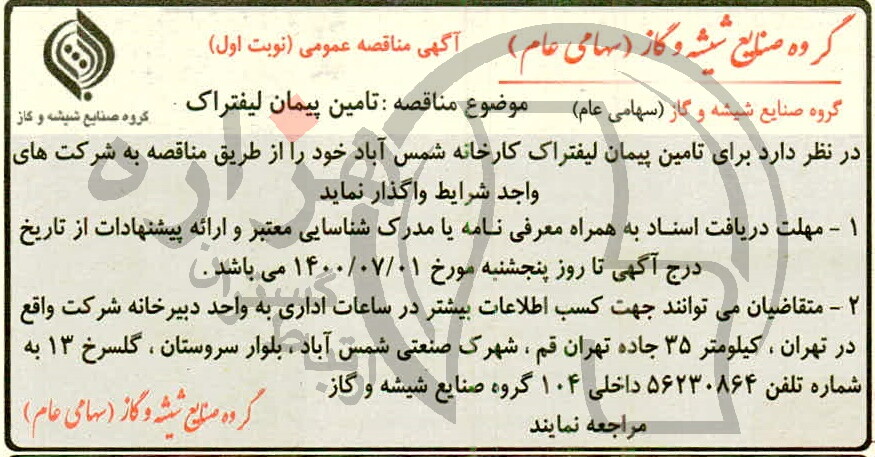 گروه صنایع شیشه و گاز (سهامی عام)
آگهی مناقصه عمومی (نوبت اول)
گروه صنایع شیشه و گاز
گروه صنایع شیشه و گاز (سهامی عام)
موضوع مناقصه : تامین پیمان لیفتراک
در نظر دارد برای تامین پیمان لیفتراک کارخانه شمس آباد خود را از طریق مناقصه به شرکت های
واجد شرایط واگذار نماید
۱ - مهلت دریافت اسناد به همراه معرفی نامه یا مدرک شناسایی معتبر و ارائه پیشنهادات از تاریخ
درج آگهی تا روز پنجشنبه مورخ ۱۴۰۰/۰۷/۰۱ می باشد .
۲ - متقاضیان می توانند جهت کسب اطلاعات بیشتر در ساعات اداری به واحد دبیرخانه شرکت واقع
در تهران ، کیلومتر ۳۵ جاده تهران قم ، شهرک صنعتی شمس آباد ، بلوار سروستان ، گلسرخ ۱۳ به
شماره تلفن ۵۶۲۳۰۸۶۴ داخلی ۱۰۴ گروه صنایع شیشه و گاز
مراجعه نمایند
گروه صنایع شیشه و گاز (سهامی عام)
هزاره